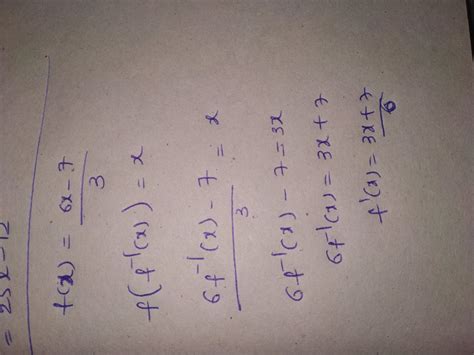 = 25x-12
f(x) = 6x-7/3
f(f⁻¹(x)) = x
6f⁻¹(x) - 7/3 = x
6f⁻¹(x) - 7 = 3x
6f⁻¹(x) = 3x + 7
f'(x) = 3x+7/6